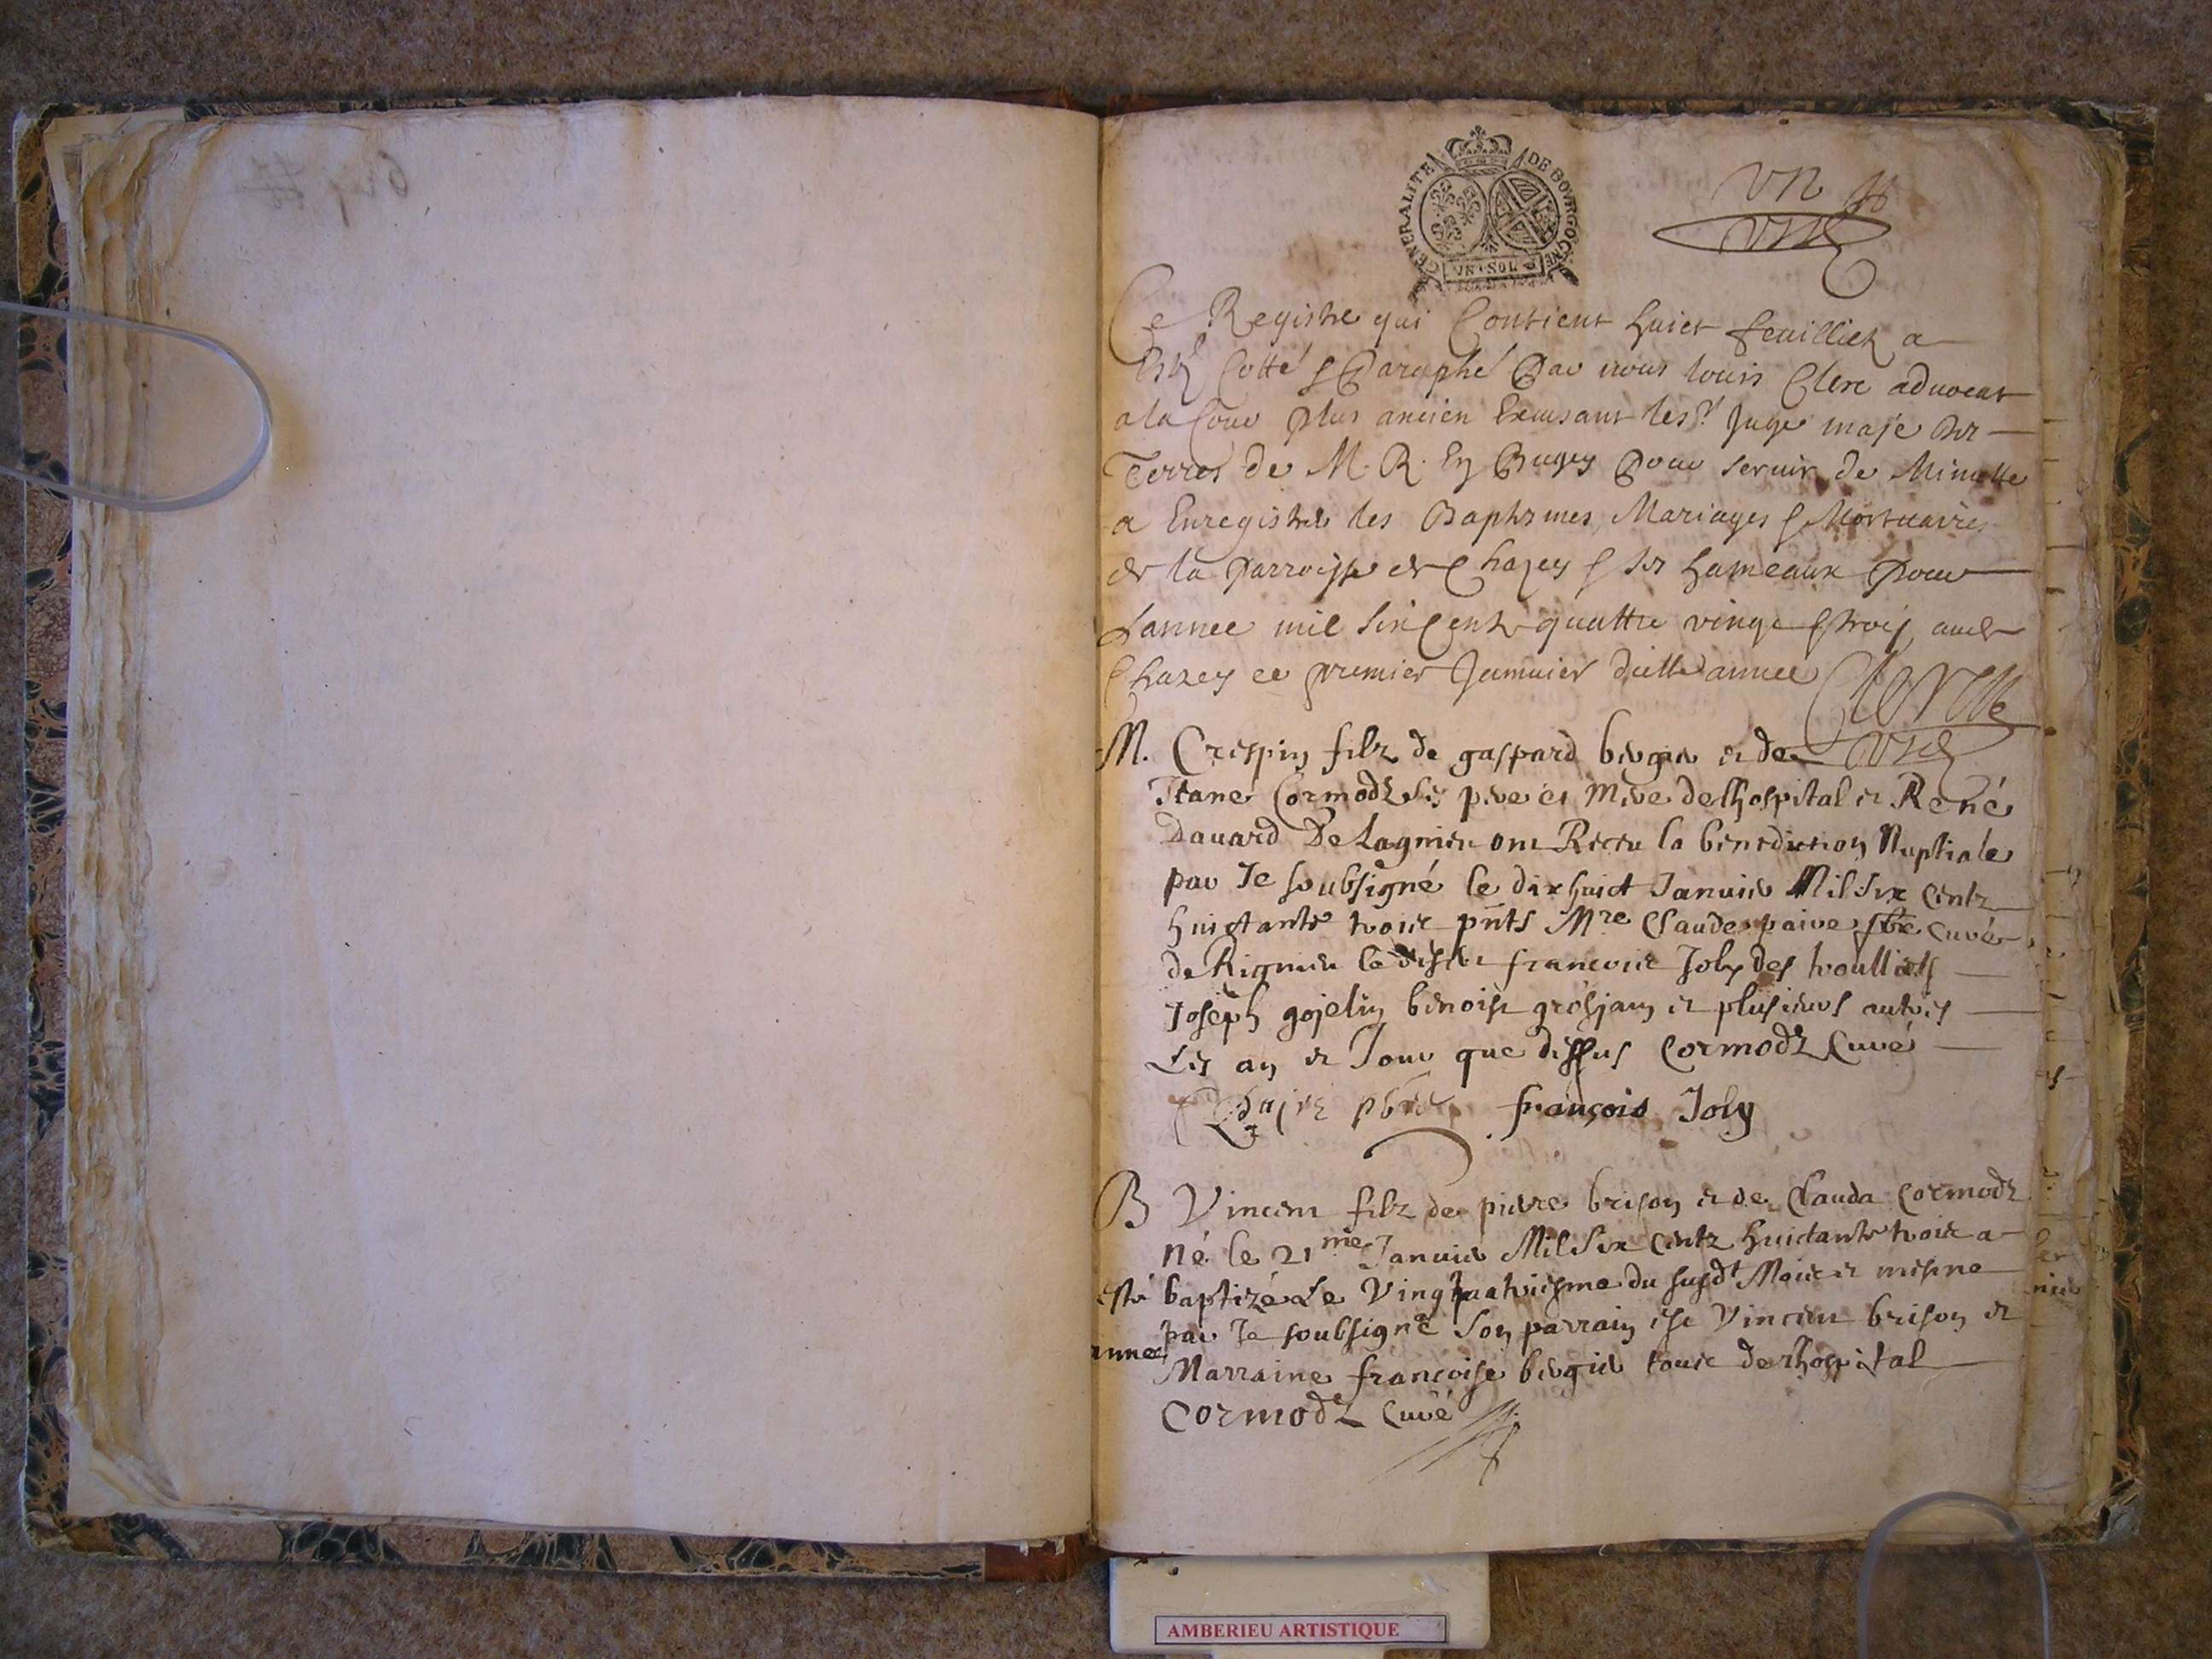 GENERALITE DE BOVRGOGNE
VN SOL
vn
Ce Registre qui Contient huict feuillietz a
Esté Cotté & Paraphé Par nous louis Clerc aduocat
a la Cour plus ancien Exersant les Juge maje des
Terres de M. R. En Bugey Pour seruir de Minutte
a Enregistrer les Baptesmes, Mariages & Mortuaires
de la Parroisse de Chazey & ses hameaux Pour
Lannee mil six Cents quattre vingt & trois,
Chazey ce premier Januier ditte annee
M. Crespin filz de gaspard bergier et de
Jeane Cormodz ses pere et Mere de lhospital et René
Dauard De Lagnieu ont Receu la benediction Nuptiale
par Je soubsigné le dixhuict Januier Mil Six Centz
huictante trois pnts Mre Claude paire pbre curé
de Rignieu le desert francois Joly des troulliets
Joseph gojelin benoist grosjean et plusieurs autres
Les an et Jour que dessus Cormodz Curé
paire pbre françois Joly
B Vincent filz de pierre brison et de Clauda Cormodz
né le 21me Januier Mil Six Centz huictante trois a
esté baptizé Le Vingtquatriesme du susdt Mois et mesme
annee par Je soubsigné Son parrain est Vincent brison et
Marraine francoise bergier tous de lhospital
Cormodz Curé
AMBERIEU ARTISTIQUE